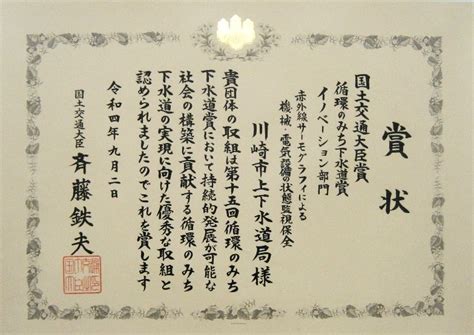 賞状
国土交通大臣賞
循環のみち下水道賞
イノベーション部門
赤外線サーモグラフィによる
機械・電気設備の状態監視保全
川崎市上下水道局様
貴団体の取組は第十五回循環のみち
下水道賞において持続的発展が可能な
社会の構築に貢献する循環のみち
下水道の実現に向けた優秀な取組と
認められましたのでこれを賞します
令和四年九月二日
国土交通大臣
斉藤鉄夫